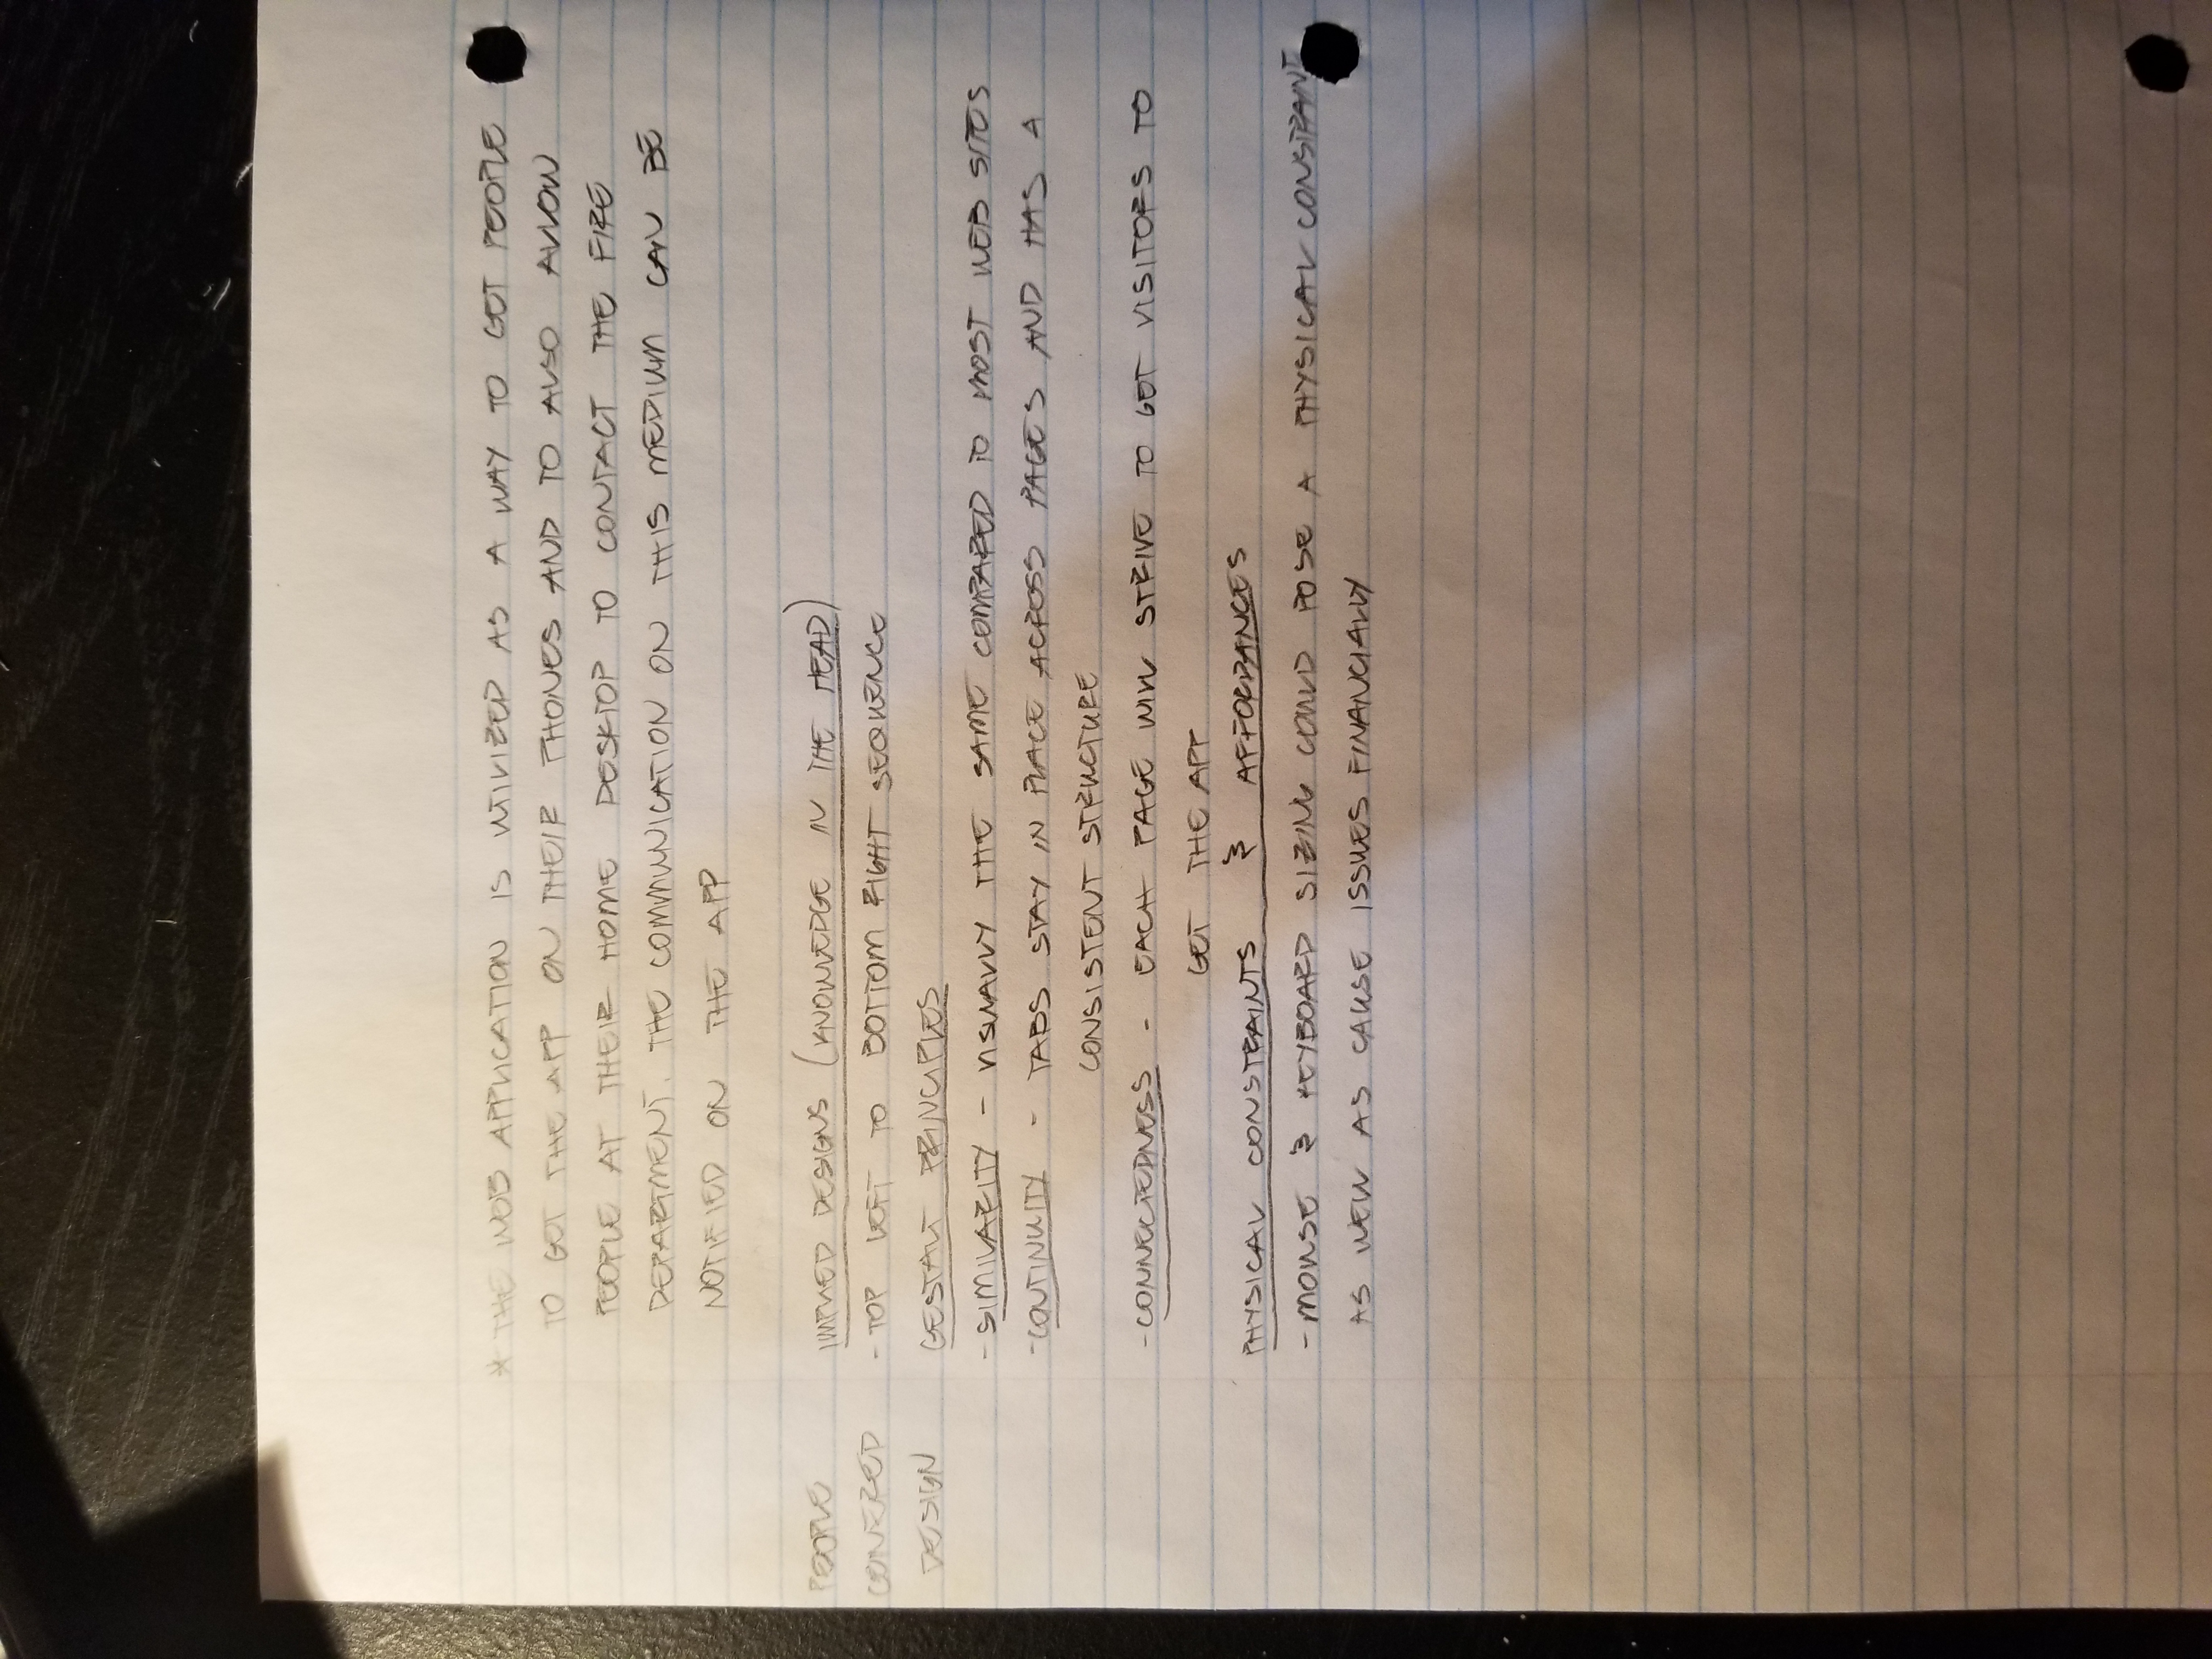 * THE WEB APPLICATION IS UTILIZED AS A WAY TO GET PEOPLE
TO GET THE APP ON THEIR PHONES AND TO ALSO ALLOW
PEOPLE AT THEIR HOME DESKTOP TO CONTACT THE FIRE
DEPARTMENT. THE COMMUNICATION ON THIS MEDIUM CAN BE
NOTIFIED ON THE APP
PEOPLE IMPLIED DESIGNS (KNOWLEDGE IN THE HEAD)
CENTERED - TOP LEFT TO BOTTOM RIGHT SEQUENCE
DESIGN GESTALT PRINCIPLES
- SIMILARITY - VISUALLY THE SAME COMPARED TO MOST WEB SITES
- CONTINUITY - TABS STAY IN PLACE ACROSS PAGES AND HAS A
CONSISTENT STRUCTURE
- CONNECTEDNESS - EACH PAGE WILL STRIVE TO GET VISITORS TO
GET THE APP
PHYSICAL CONSTRAINTS & AFFORDANCES
- MOUSE & KEYBOARD SIZING COULD POSE A PHYSICAL CONSTRAINT
AS WELL AS CAUSE ISSUES FINANCIALLY